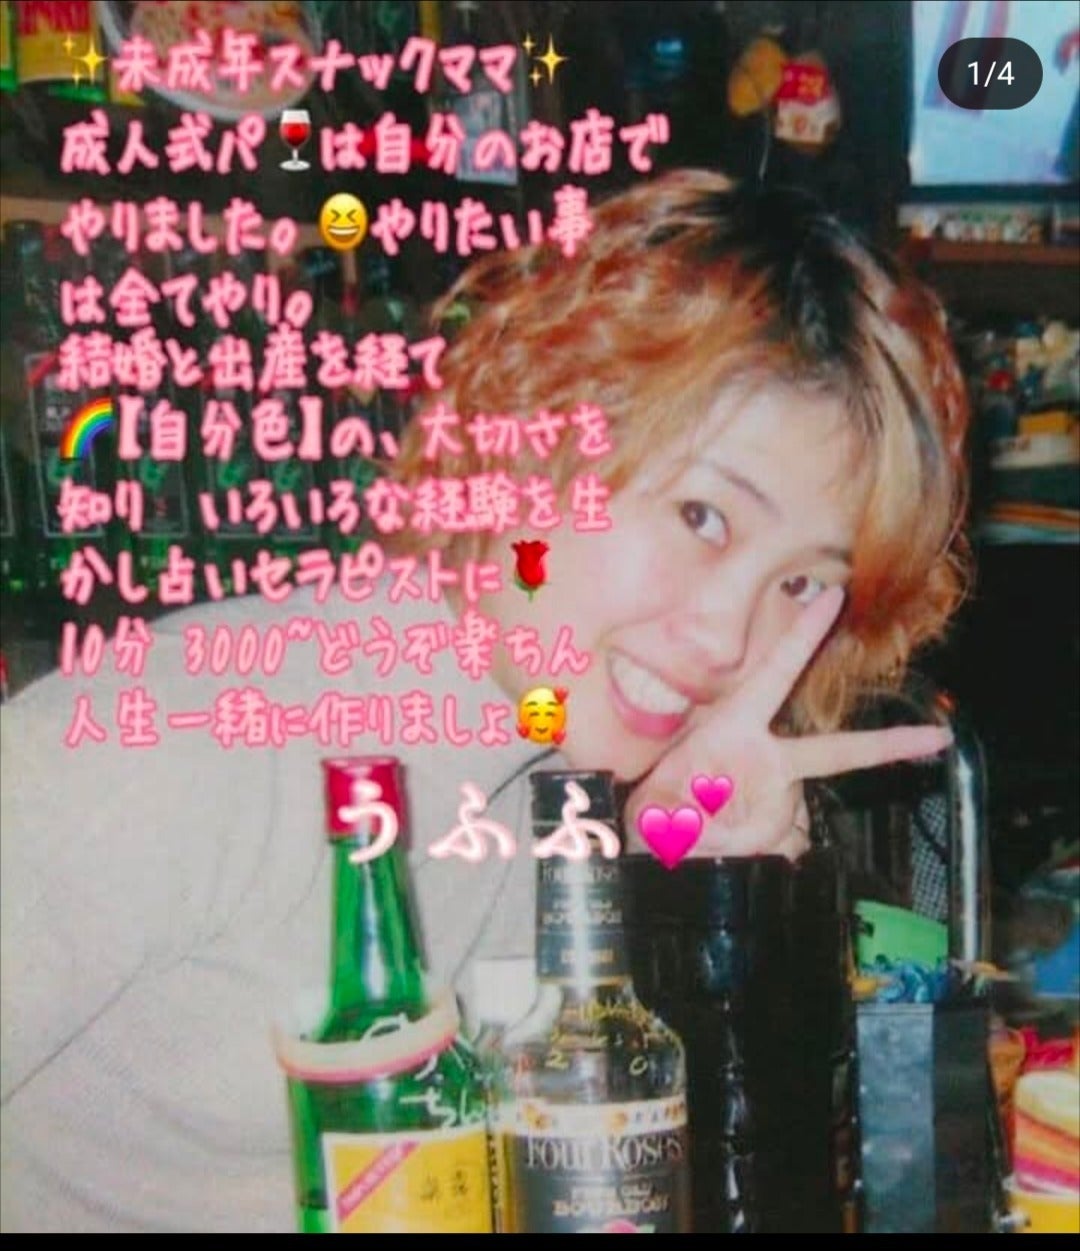 1/4
✨未成年スナックママ✨
成人式パ🍷は自分のお店で
やりました。😆やりたい事
は全てやり。
結婚と出産を経て
🌈【自分色】の、大切さを
知り　いろいろな経験を生
かし占いセラピストに🌹
10分 3000~どうぞ楽ちん
人生一緒に作りましょ🥰
うふふ💕
FOUR ROSES
BOURBON